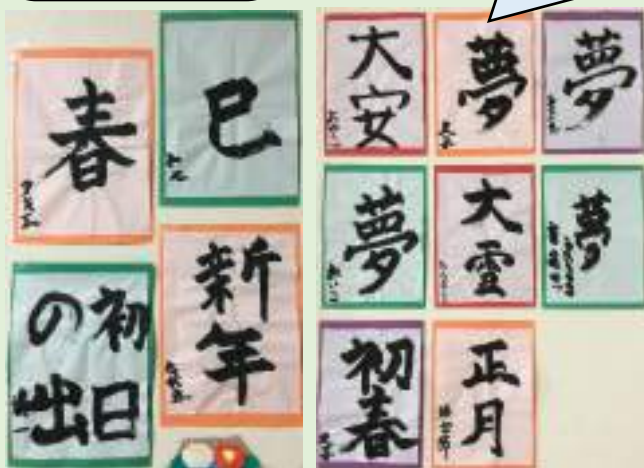 春
巳
初日
の出
新年
大安
夢
夢
夢
大霊
夢
初春
正月